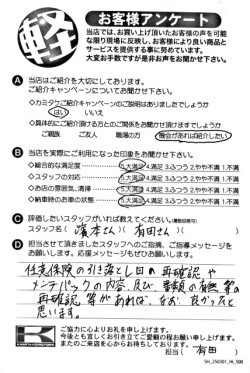 軽
お客様アンケート
当店では、お買い上げ頂いたお客様の声を可能
な限り現場に反映し、お客様により良い商品と
サービスを提供する事に努めています。
大変お手数ですが是非お声をお聞かせ下さい。
A 当店はご紹介を大切にしております。
ご紹介キャンペーンについてお聞かせ下さい。
◇カミタケご紹介キャンペーンのご説明はありましたでしょうか
はい いいえ
◇具体的にご紹介頂ける方とのご関係をお聞かせ頂けますでしょうか
ご親族 ご友人 職場の方 機会があれば紹介したい
B 当店を実際にご利用になった印象をお聞かせ下さい。
◇総合的な満足度 5.大満足 4.満足 3.ふつう 2.やや不満 1.不満
◇スタッフの対応 5.大満足 4.満足 3.ふつう 2.やや不満 1.不満
◇お店の雰囲気、清掃 5.大満足 4.満足 3.ふつう 2.やや不満 1.不満
◇納車時のお車の状態 5.大満足 4.満足 3.ふつう 2.やや不満 1.不満
C 評価したいスタッフがいれば教えてください。(複数回答可)
スタッフ名( 濱本さん )( 有田さん )
D 担当させて頂きましたスタッフへのご指摘、ご指導メッセージを
お願いします。応援メッセージもお願いします!
任意保険の引き落とし日の再確認や
メンテパックの内容、及び、書類の有無等の
再確認等があれば、なお、良かったと
思います。
ご協力に心よりお礼を申し上げます。
今後とも宜しくお引き立てご愛顧の程お願い申し上げます。
またのご来店を心からお待ちしております。
担当( 有田 )
SH_250301_HI_500